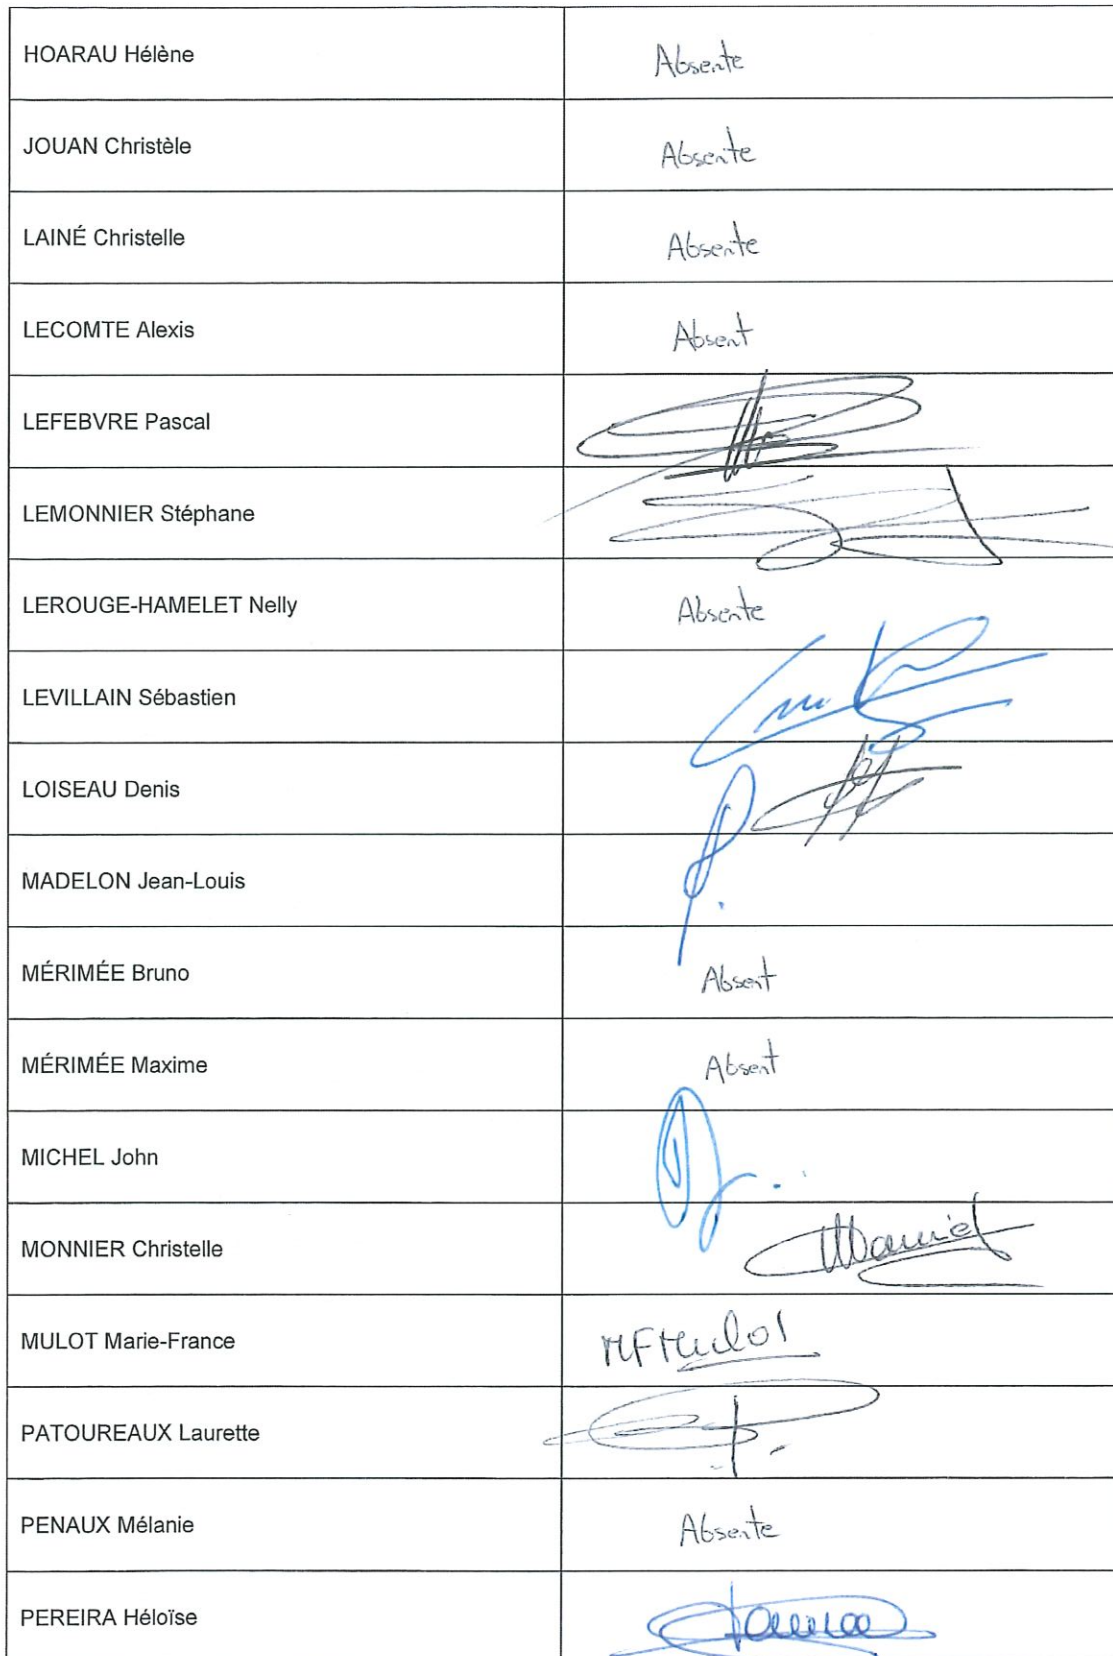 HOARAU Hélène Absente
JOUAN Christèle Absente
LAINÉ Christelle Absente
LECOMTE Alexis Absent
LEFEBVRE Pascal
LEMONNIER Stéphane
LEROUGE-HAMELET Nelly Absente
LEVILLAIN Sébastien
LOISEAU Denis
MADELON Jean-Louis
MÉRIMÉE Bruno Absent
MÉRIMÉE Maxime Absent
MICHEL John
MONNIER Christelle
MULOT Marie-France MFMulot
PATOUREAUX Laurette
PENAUX Mélanie Absente
PEREIRA Héloïse